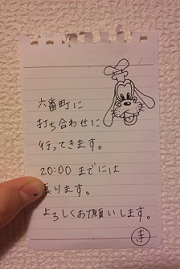 六番町に
打ち合わせに
行ってきます。
20:00 までには
戻ります。
よろしくお願いします。